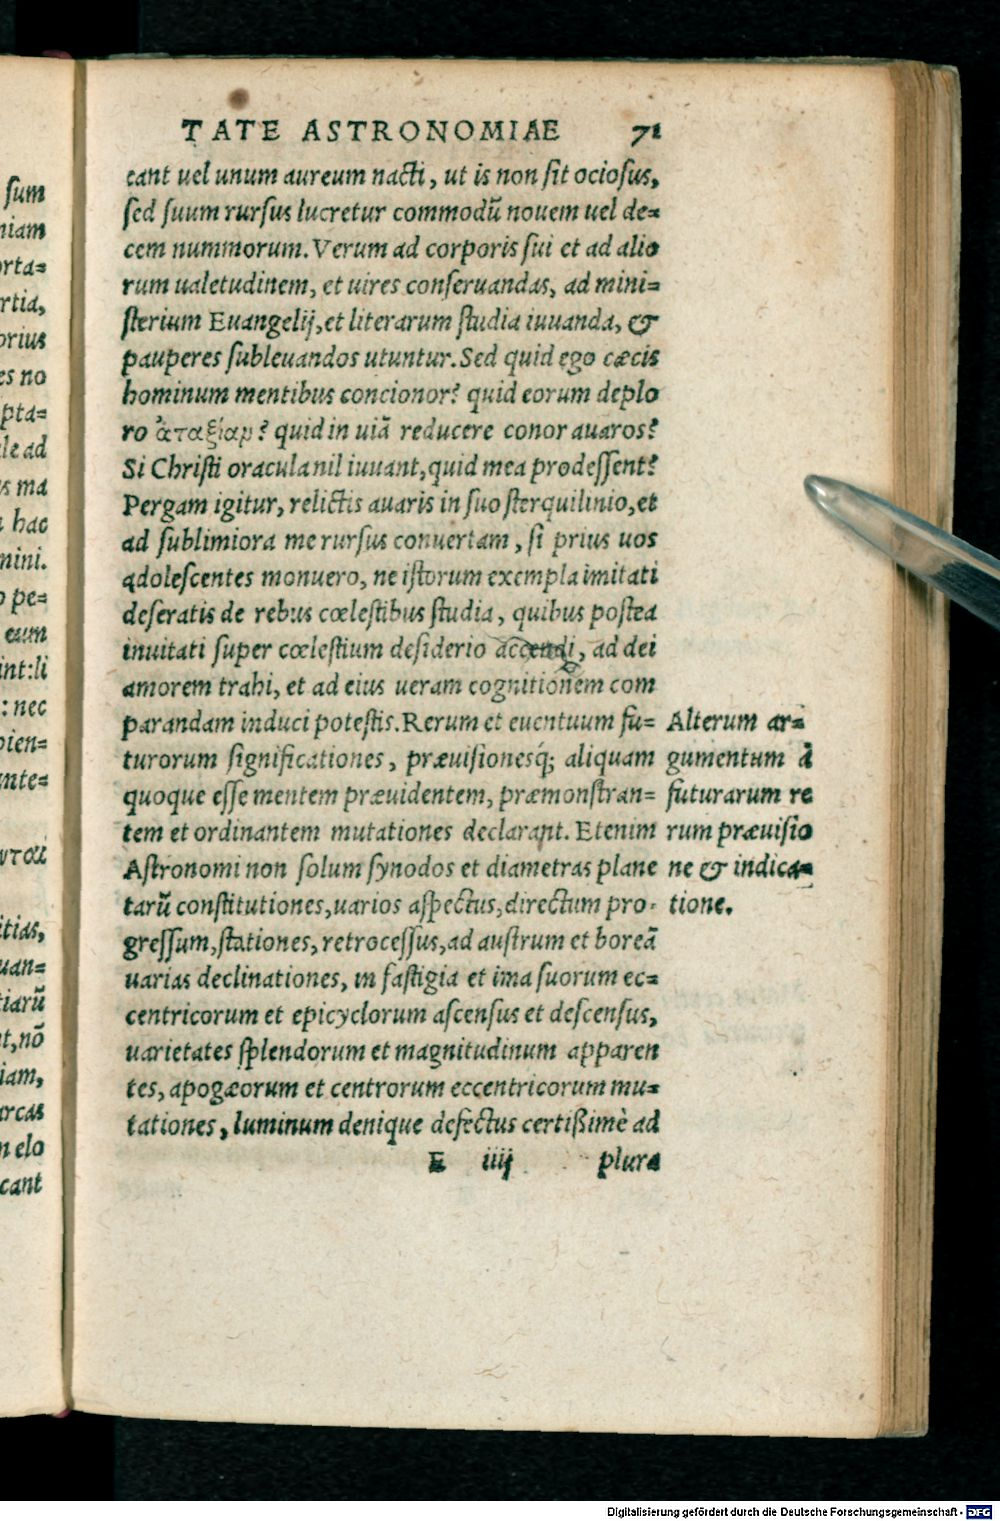 TATE ASTRONOMIAE 71
cant uel unum aureum nacti, ut is non sit ociosus,
sed suum rursus lucretur commodū nouem uel de=
cem nummorum. Verum ad corporis sui et ad alio
rum ualetudinem, et uires conseruandas, ad mini=
sterium Euangelij, et literarum studia iuuanda, &
pauperes subleuandos utuntur. Sed quid ego cæcis
hominum mentibus concionor? quid eorum deplo
ro ἀταξίαν? quid in uiā reducere conor auaros?
Si Christi oracula nil iuuant, quid mea prodessent?
Pergam igitur, relictis auaris in suo sterquilinio, et
ad sublimiora me rursus conuertam, si prius uos
adolescentes monuero, ne istorum exempla imitati
deseratis de rebus cœlestibus studia, quibus postea
inuitati super cœlestium desiderio accendi, ad dei
amorem trahi, et ad eius ueram cognitionem com
parandam induci potestis. Rerum et euentuum fu=
turorum significationes, præuisionesq́; aliquam
quoque esse mentem præuidentem, præmonstran=
tem et ordinantem mutationes declarant. Etenim
Astronomi non solum synodos et diametras plane
tarū constitutiones, uarios aspectus, directum pro-
gressum, stationes, retrocessus, ad austrum et boreā
uarias declinationes, in fastigia et ima suorum ec=
centricorum et epicyclorum ascensus et descensus,
uarietates splendorum et magnitudinum apparen
tes, apogæorum et centrorum eccentricorum mu=
tationes, luminum denique defectus certißimè ad
E iiij plura
Alterum ar=
gumentum à
futurarum re
rum præuisio
ne & indica=
tione.
sum
niam
orta=
rtia,
orius
es no
pta=
le ad
s ma
hac
mini.
o pe=
eum
int: li
: nec
pien=
ante=
υτου
itias,
uan=
tiarū
t, nō
iam,
arcas
n elo
cant
Digitalisierung gefördert durch die Deutsche Forschungsgemeinschaft - DFG